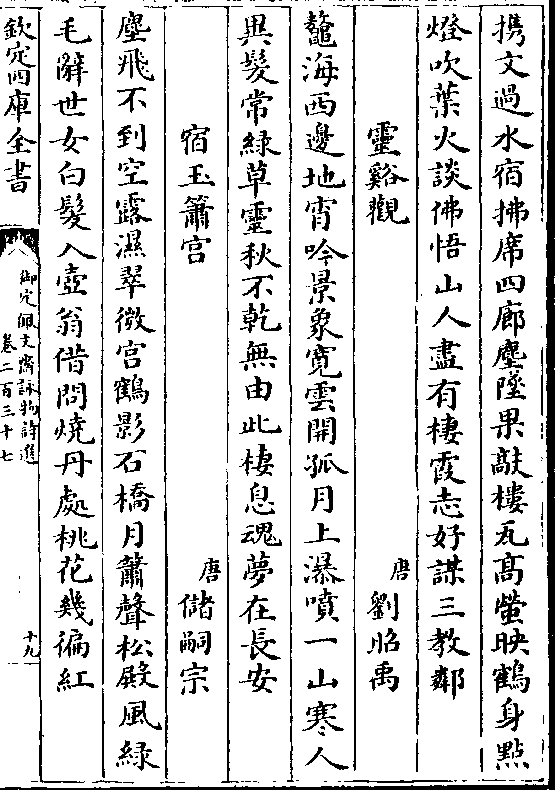 携文過水宿拂席四廊塵墜果敲樓瓦高螢映鶴身點
燈吹葉火談佛悟山人盡有棲霞志好謀三教鄰
靈谿觀 唐劉昭禹
鼇海西邊地宵吟景象寛雲開孤月上瀑噴一山寒人
異髮常緑草靈秋不乾無由此棲息魂夢在長安
宿玉簫宫 唐儲嗣宗
塵飛不到空露濕翠微宫鶴影石橋月簫聲松殿風緑
毛辭世女白髮入壺翁借問燒丹處桃花幾徧紅
欽定四庫全書
御定佩文齋詠物詩選
卷二百三十七
十九